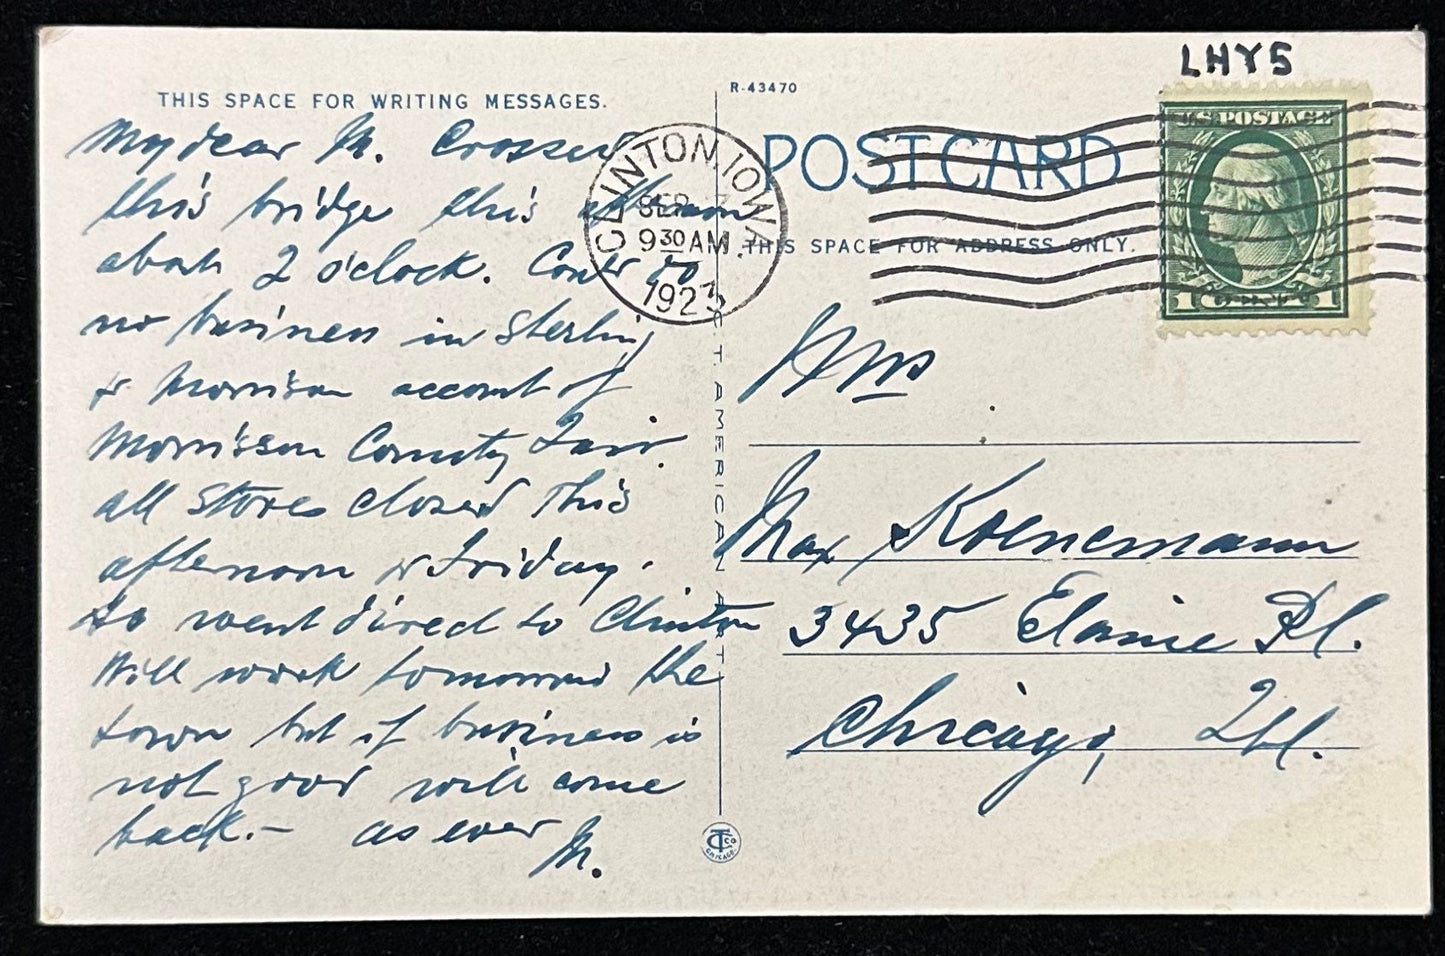 LHY5
THIS SPACE FOR WRITING MESSAGES.
My dear M. Crossed
this bridge this afternoon
about 2 o'clock. Could do
no business in Sterling
& Morrison account of
Morrison County Fair.
all stores closed this
afternoon & Friday.
so went direct to Clinton
Will work tomorrow the
town but if business is
not good will come
back. — as ever
M.
CLINTON, IOWA.
SEP
9 30 AM
1923
R-43470
POST CARD
THIS SPACE FOR ADDRESS ONLY.
U.S. POSTAGE
1 CENT 1
C. T. AMERICAN ART
Mrs
Max Koenemann
3435 Elaine Pl.
Chicago, Ill.
CTCO
CHICAGO